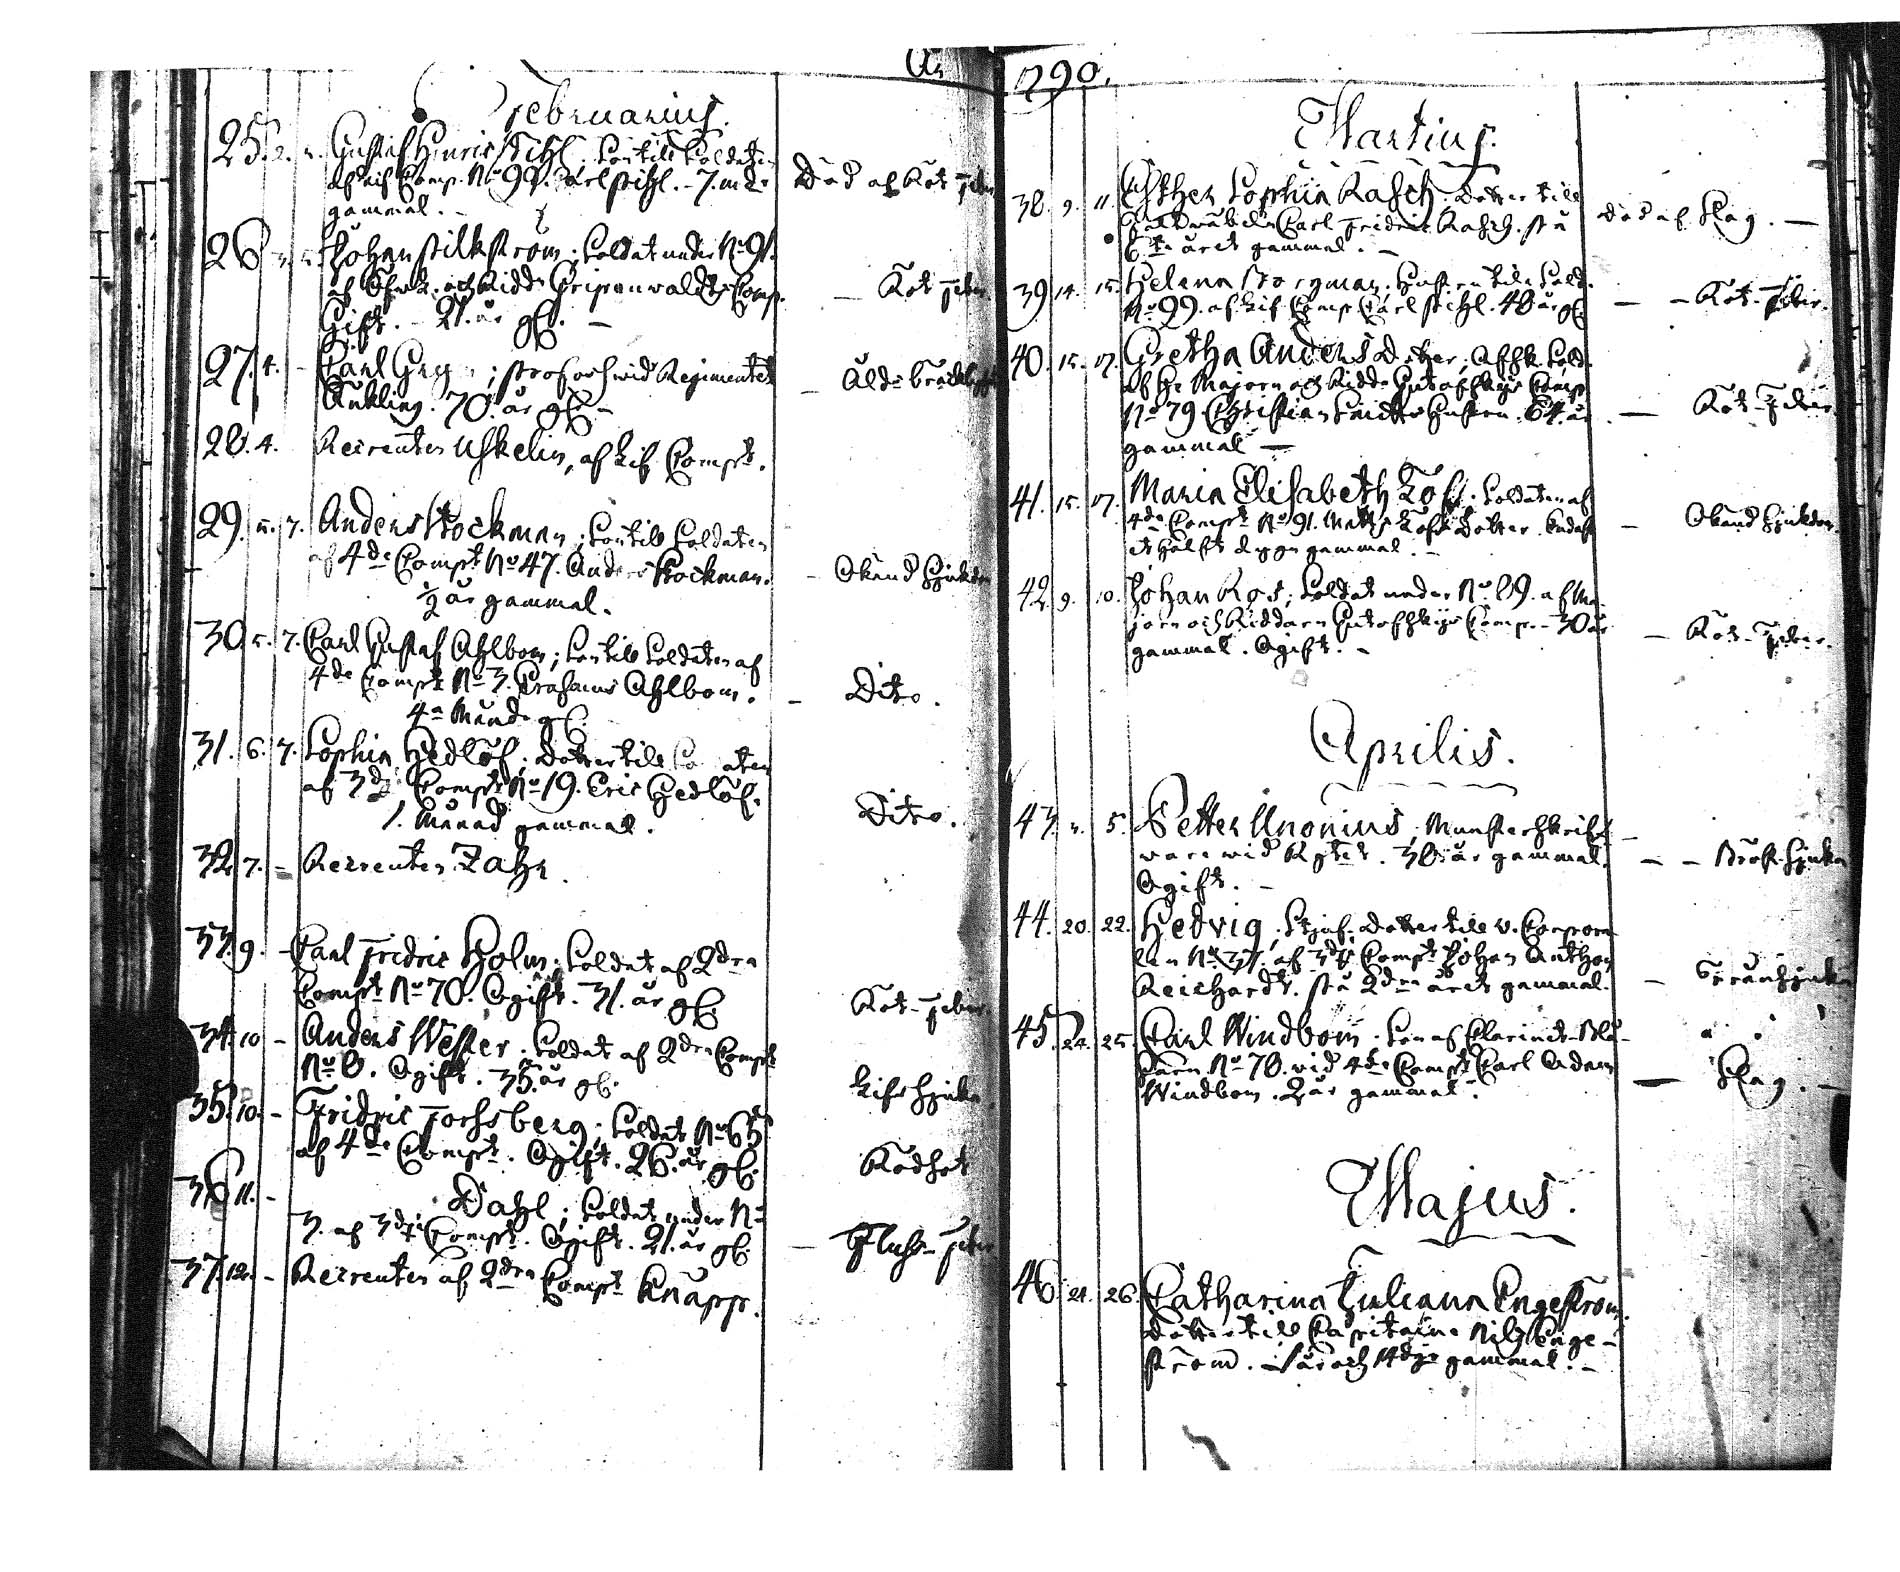 År
Februarius.
25. 2. 5. Gustaf Henric Stihl. Son till Soldaten
af Lif Comp. No 99. Carl Stihl. - 7. m. Dr
gammal. -
Död af Röt feber
26 3. 5. Johan Silkström; Soldat under No 91.
af och Ridd. Gripenwaldts Comp.
Gift. - 21. år gl. -
- Röt feber
27. 4. - Carl ; Profoss wid Regimentet
70. år gl. -
- Ålds bräcklighet
28. 4. Recreuten Uskelin, af Lif Compt.
29. 5. 7. Anders Stockman; Son till Soldaten
af 4de Compt No 47. Anders Stockman.
1/2 år gammal.
- Okänd Sjukdom
30. 5. 7. Carl Gustaf Ahlbom; Son till Soldaten af
4de Compt No 3. Erasmus Ahlbom.
4a Månd. gl.
- Dito.
31. 6. 7. Sophia Hedlöf; Dotter till So aten
af 3dje Compt No 19. Eric Hedlöf.
1. Månad gammal.
Dito.
32. 7. - Recreuten Zahn.
33. 9. - Carl Fridric Holm; Soldat af 2dra
Compt No 70. Ogift. 31. år gl.
Röt-feber
34. 10 - Anders Wester. Soldat af 2dra Compt
No 8. Ogift. 35. år gl.
35. 10. - Fridric Forssberg; Soldat No 65
af 4de Compt. Ogift. 26. år gl.
Rödsot
36 11. - Dahl; Soldat under No
3. af 3dje Compt. Ogift. 21. år gl.
- Fluss-feber
37. 12. - Recreuten af 2dra Compt Knapp.
1790.
Martius.
38. 9. 11. Esther Sophia Rasch. Dotter till
Carl Fridric Rasch. på
6te året gammal. -
död af Slag. -
39 14. 15. Helena Borgman. Hustru till Sold.
No 99. af Lif Comp Carl Stihl. 48 år gl.
- - Röt-feber.
40. 15. 17. Gretha Anders Dotter; Afsk. Sold.
af Hr Majoren och Ridd. Gutoffskys Comp
No 79 Christian Hustru. 64. år
gammal -
- Röt-feber.
41. 15. 17. Maria Elisabeth Löf. Soldaten af
4de Compt No 91. Matts Löfs Dotter. Endast
et hälft dygn gammal. -
- Okänd Sjukdom.
42. 9. 10. Johan Ros; Soldat under No 89. af Ma-
joren och Riddaren Gutoffskys Comp. - 30 år
gammal. Ogift. -
- Röt-feber.
Aprilis.
43. 2. 5. Petter Unonius; Munsterskrif-
vare wid Rgtet. 38 år gammal.
Ogift. -
- - Bröst-Sjuka
44. 20. 22. Hedvig, Stjuf-Dotter till v. Corpora-
len No 37. af 3dje Compt Johan Anthon
Reichardt. på 2dra året gammal.
45. 24. 25. Carl Windbom. Son af Clarinet-Blå-
saren No 78. wid 4de Compt Carl Adam
Windbom. 2 år gammal.
- Slag. -
Majus.
46 21. 26. Catharina Juliana Engeström.
Dotter till Capitaine Nils Enge-
ström. - 1 år och 14 dgr gammal. -